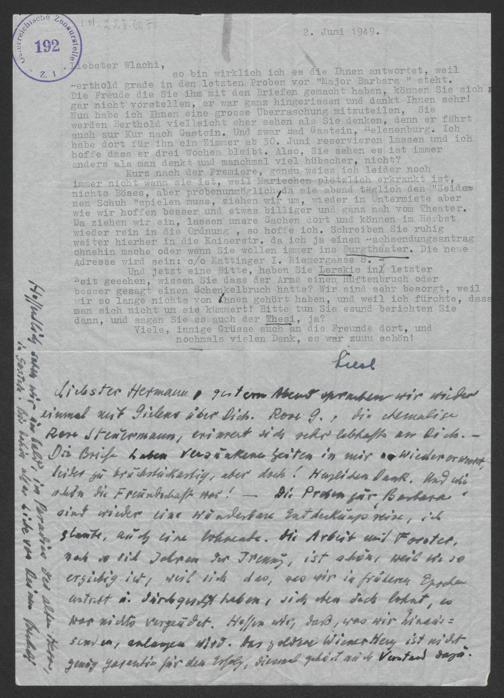 Österreichische Zensurstelle
192
Z 1
2. Juni 1949.
Liebster Wlachi,
so bin wirklich ich es die Ihnen antwortet, weil
Berthold grade in den letzten Proben von "Major Barbara" steht.
Die Freude die Sie ihm mit den Briefen gemacht haben, können Sie sich
gar nicht vorstellen, er war ganz hingerissen und denkt Ihnen sehr!
Nun habe ich Ihnen eine grosse Überraschung mitzuteilen, Sie
werden Berthold vielleicht eher sehen als Sie denken, denn er fährt
auch zur Kur nach Gastein. Und zwar Bad Gastein, Helenenburg. Ich
habe dort für ihn ein Zimmer ab 30. Juni reservieren lassen und ich
hoffe dass er drei Wochen bleibt. Also, Sie sehen es ist immer
anders als man denkt und manchmal viel hübscher, nicht?
Kurz nach der Premiere, genau weiss ich leider noch
immer nicht wann sie ist, weil Mariechen plötzlich erkrankt ist,
nichts Böses, aber probenunmöglich da sie abend täglich den "Seiden
nen Schuh" spielen muss, ziehen wir um, wieder in Untermiete aber
wie wir hoffen besser und etwas billiger und ganz nah vom Theater.
Da ziehen wir ein, lassen unsre Sachen dort und können im Herbst
wieder rein in die Ordnung, so hoffe ich. Schreiben Sie ruhig
weiter hierher in die Kaiserstr, da ich ja einen Nachsendungsantrag
ohnehin mache oder wenn Sie wollen immer ins Burgtheater. Die neue
Adresse wird sein: c/o Kattinger I. Riemergasse
Und jetzt eine Bitte, haben Sie Lerskie in letzter
Zeit gesehen, wissen Sie dass der Arme einen Hüftenbruch oder
besser gesagt einen Schenkelbruch hatte? Wir sind sehr besorgt, weil
wir so lange nichts von ihnen gehört haben, und weil ich fürchte, dass
man sich nicht um sie kümmert! Bitte tun Sie es und berichten Sie
dann, und sagen Sie es auch der Thesi, ja?
Viele, innige Grüsse auch an die Freunde dort, und
nochmals vielen Dank, es war zuuu schön!
Liesl
Liebster Hermann, gestern Abend sprachen wir wieder
einmal mit Gielens über Dich. Rose G., die ehemalige
Rose Steuermann, erinnert sich sehr lebhaft an Dich. –
Die Briefe haben versunkene Zeiten in mir wiedererweckt,
leider zu bruchstückartig, aber doch! Herzlichen Dank. Und wie
schön die Freundschaft war! – Die Proben für "Barbara"
sind wieder eine wunderbare Entdeckungsreise, ich
glaube, auch eine lohnende. Die Arbeit mit Forster,
nach so viel Jahren der Trennung, ist schön, weil sie so
ergiebig ist, weil sich das, was wir in früheren Epochen
und durchgesetzt haben, sich eben doch lohnt, es
war nichts vergeudet. Hoffen wir, daß, was wir hinaus-
senden, anlangen wird. Das goldene Wienerherz ist nicht
genug Garantie für den Erfolg, diesmal gehört auch Verstand dazu.
Hoffentlich sehen wir uns bald, im Paradies des alten Herrn,
in Gastein. Bis dahin alles Liebe von Deinem Berthold